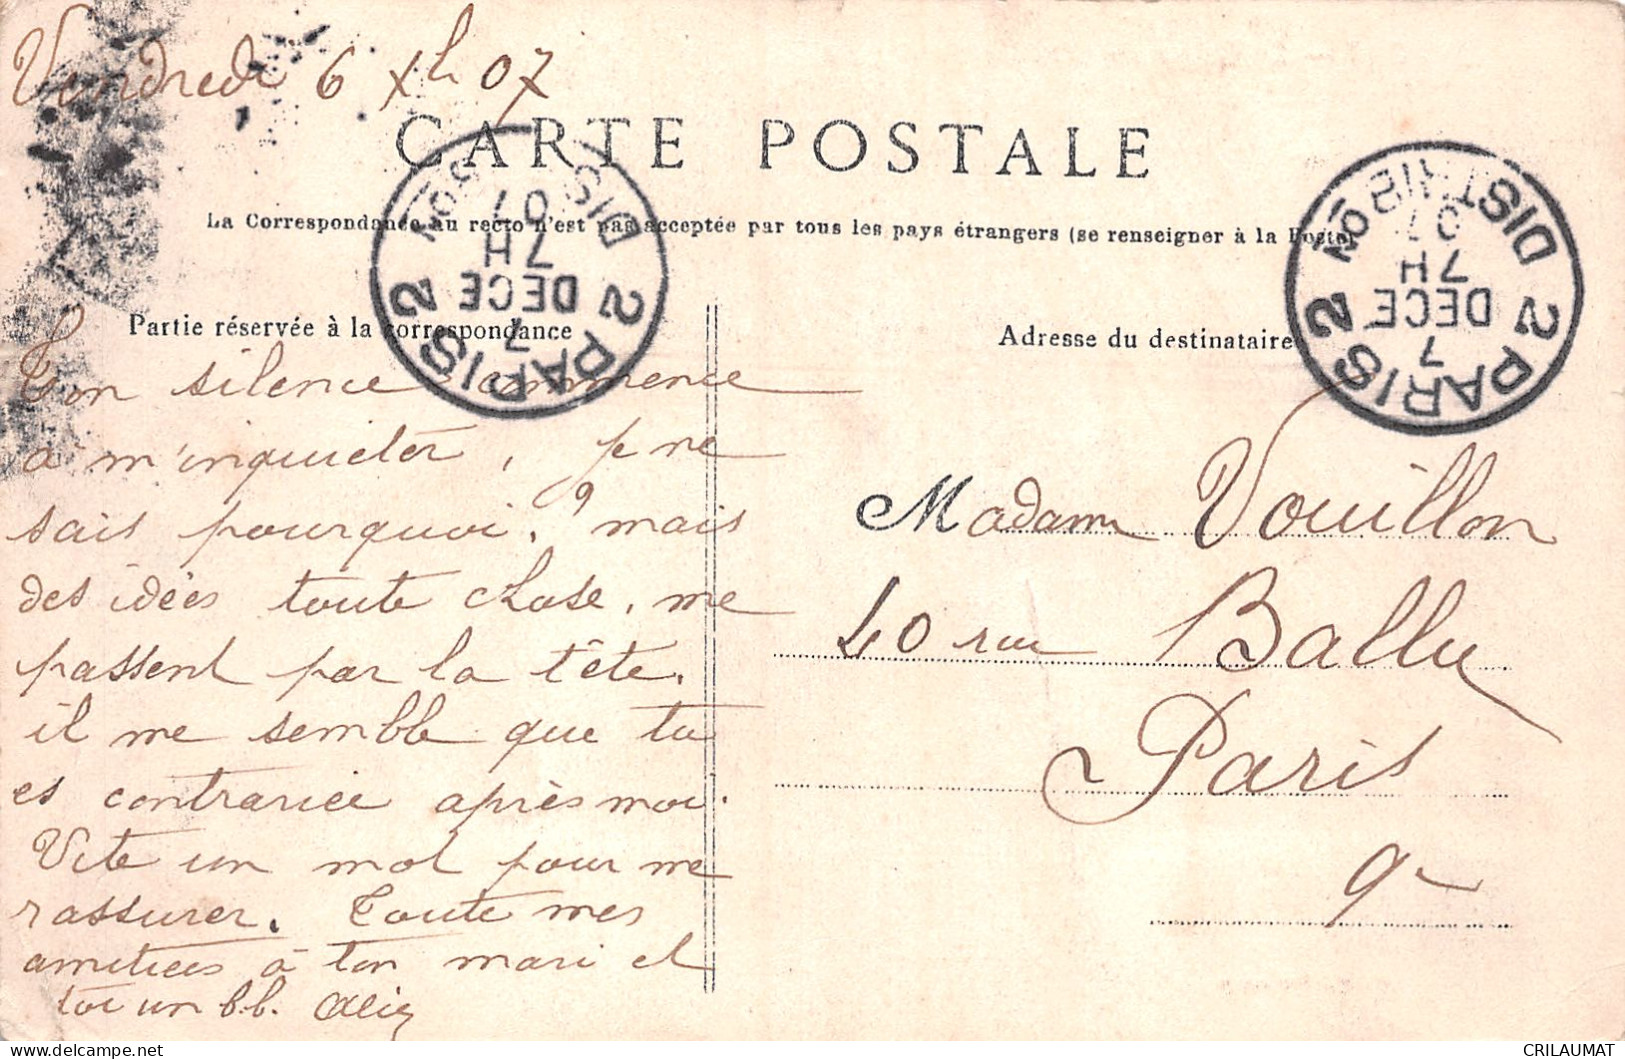 Vendredi 6 Xh 07
CARTE POSTALE
La Correspondance au recto n'est pas acceptée par tous les pays étrangers (se renseigner à la Poste)
Partie réservée à la correspondance
Adresse du destinataire
PARIS 2
DISTION
7
DECE
7H
07
PARIS 2
7
DECE
7H
07
Ton silence commence
a m'inquieter, je ne
sais pourquoi? mais
des idées toute chose, me
passent par la tête.
il me semble que tu
es contrariée après moi.
Vite un mot pour me
rassurer. Toute mes
amitiées à ton mari et
toi un b.b.
Madame Vouillon
40 rue Ballu
Paris
9e
CRILAUMAT